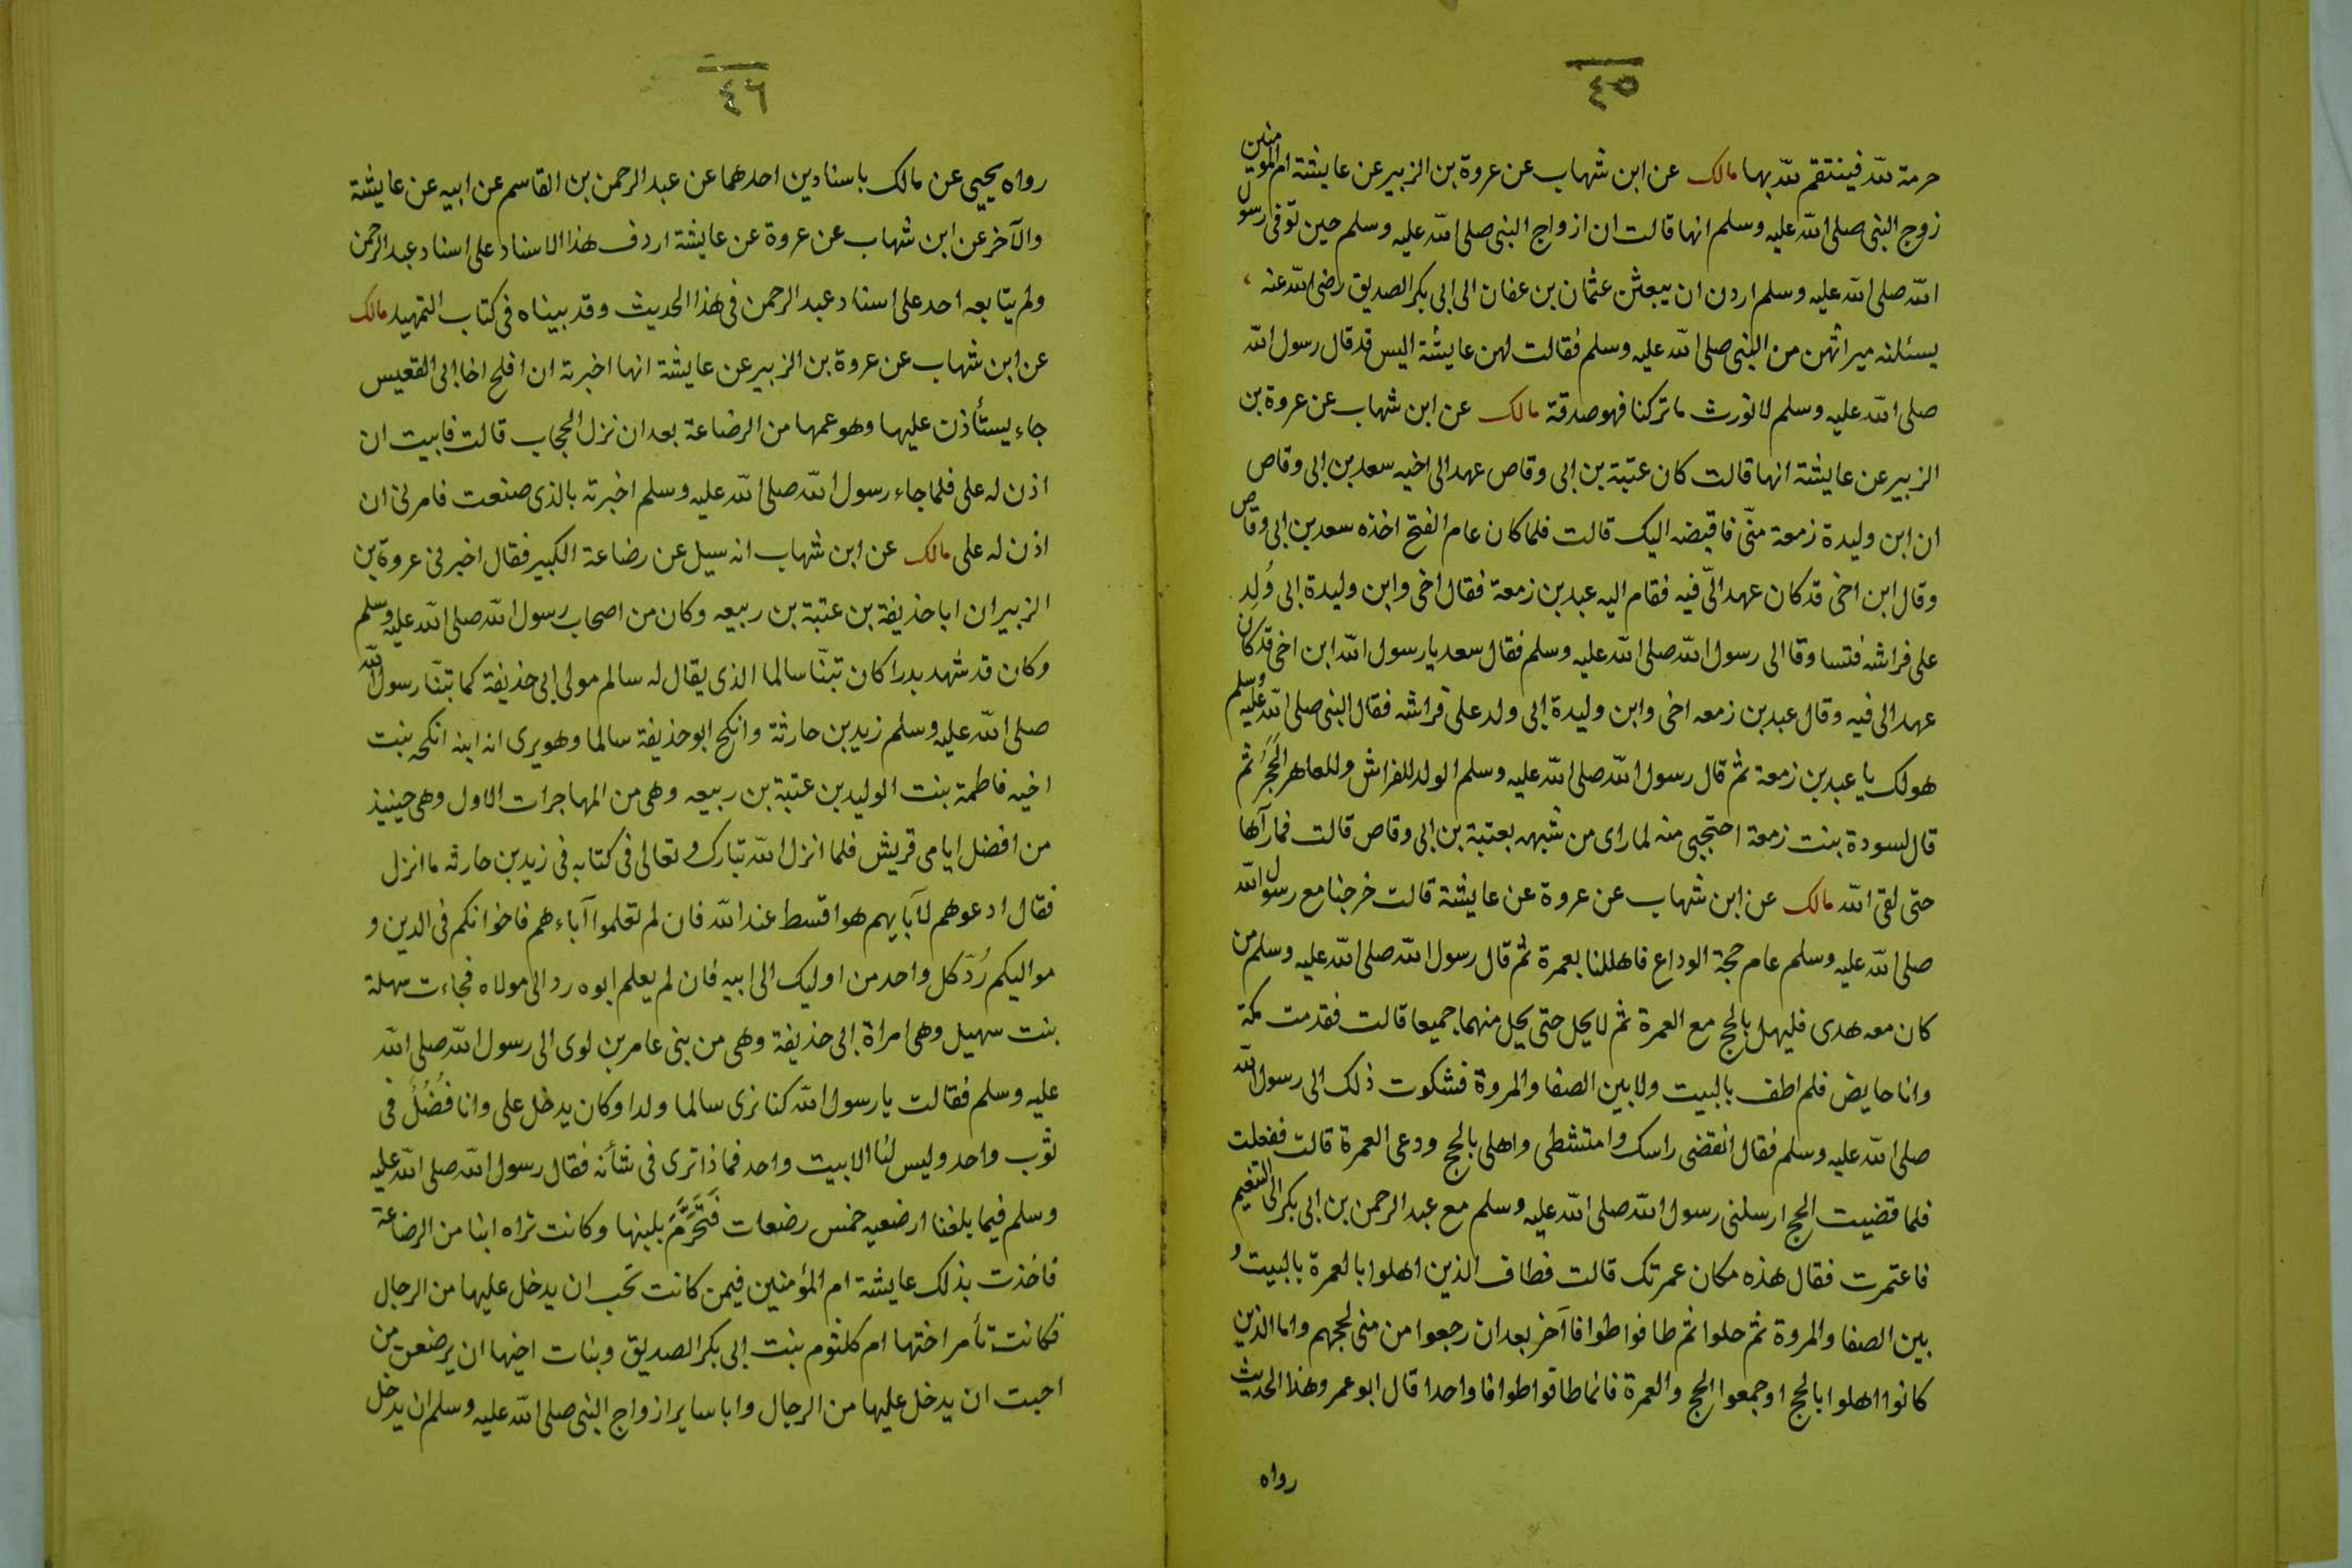 ٤٥
حرمة لله فينتقم لله بها مالك عن ابن شهاب عن عروة بن الزبير عن عايشة ام المؤمنين
زوج النبى صلى الله عليه وسلم انها قالت ان ازواج النبى صلى الله عليه وسلم حين توفى رسول
الله صلى الله عليه وسلم اردن ان يبعثن عثمان بن عفان الى ابى بكر الصديق رضى الله عنه
يسئلنه ميراثهن من النبى صلى الله عليه وسلم فقالت لهن عايشة اليس قد قال رسول الله
صلى الله عليه وسلم لا نورث ما تركنا فهو صدقة مالك عن ابن شهاب عن عروة بن
الزبير عن عايشة انها قالت كان عتبة بن ابى وقاص عهد الى اخيه سعد بن ابى وقاص
ان ابن وليدة زمعة منّى فاقبضه اليك قالت فلما كان عام الفتح اخذه سعد بن ابى وقاص
وقال ابن اخى قد كان عهد الىّ فيه فقام اليه عبد بن زمعة فقال اخى وابن وليدة ابى وُلِد
على فراشه فتساوقا الى رسول الله صلى الله عليه وسلم فقال سعد يا رسول الله ابن اخى قد كان
عهد الى فيه وقال عبد بن زمعه اخى وابن وليدة ابى ولد على فراشه فقال النبى صلى الله عليه وسلم
هو لك يا عبد بن زمعة ثم قال رسول الله صلى الله عليه وسلم الولد للفراش وللعاهر الحَجَرُ ثم
قال لسودة بنت زمعة احتجبى منه لما راى من شبهه بعتبة بن ابى وقاص قالت فما رآها
حتى لقى الله مالك عن ابن شهاب عن عروة عن عايشة قالت خرجنا مع رسول الله
صلى الله عليه وسلم عام حجة الوداع فاهللنا بعمرة ثم قال رسول الله صلى الله عليه وسلم من
كان معه هدى فليهل بالحج مع العمرة ثم لا يحل حتى يحل منهما جميعا قالت فقدمت مكة
وانا حايض فلم اطف بالبيت ولا بين الصفا والمروة فشكوت ذلك الى رسول الله
صلى الله عليه وسلم فقال انقضى راسك وامتشطى واهلى بالحج ودعى العمرة قالت ففعلت
فلما قضيت الحج ارسلنى رسول الله صلى الله عليه وسلم مع عبد الرحمن بن ابى بكر الى التنعيم
فاعتمرت فقال هذه مكان عمرتك قالت فطاف الذين اهلوا بالعمرة بالبيت و
بين الصفا والمروة ثم حلوا ثم طافوا طوافا آخر بعد ان رجعوا من منى لحجهم واما الذين
كانوا اهلوا بالحج او جمعوا الحج والعمرة فانما طافوا طوافا واحدا قال ابو عمر وهذا الحديث
رواه
٤٦
رواه يحيى عن مالك باسنادين احدهما عن عبد الرحمن بن القاسم عن ابيه عن عايشة
والآخر عن ابن شهاب عن عروة عن عايشة اردف هذا الاسناد على اسناد عبد الرحمن
ولم يتابعه احد على اسناد عبد الرحمن فى هذا الحديث وقد بيناه فى كتاب التمهيد مالك
عن ابن شهاب عن عروة بن الزبير عن عايشة انها اخبرته ان افلح اخا ابى القعيس
جاء يستأذن عليها وهو عمها من الرضاعة بعد ان نزل الحجاب قالت فابيت ان
اذن له على فلما جاء رسول الله صلى الله عليه وسلم اخبرته بالذى صنعت فامرنى ان
اذن له على مالك عن ابن شهاب انه سيل عن رضاعة الكبير فقال اخبرنى عروة بن
الزبير ان ابا حذيفة بن عتبة بن ربيعه وكان من اصحاب رسول الله صلى الله عليه وسلم
وكان قد شهد بدرا كان تبنّا سالما الذى يقال له سالم مولى ابى حذيفة كما تبنّا رسول الله
صلى الله عليه وسلم زيد بن حارثة وانكح ابو حذيفة سالما وهو يرى انه ابنه انكحه بنت
اخيه فاطمة بنت الوليد بن عتبة بن ربيعه وهى من المهاجرات الاول وهى حينيذ
من افضل ايامى قريش فلما انزل الله تبارك وتعالى فى كتابه فى زيد بن حارثه ما انزل
فقال ادعوهم لآبايهم هو اقسط عند الله فان لم تعلموا آباءهم فاخوانكم فى الدين و
مواليكم رُدّ كل واحد من اوليك الى ابيه فان لم يعلم ابوه رد الى مولاه فجاءت سهلة
بنت سهيل وهى امراة ابى حذيفة وهى من بنى عامر بن لوى الى رسول الله صلى الله
عليه وسلم فقالت يا رسول الله كنا نرى سالما ولدا وكان يدخل على وانا فُضُلٌ فى
ثوب واحد وليس لنا الا بيت واحد فماذا ترى فى شأنه فقال رسول الله صلى الله عليه
وسلم فيما بلغنا ارضعيه خمس رضعات فَتَحَرَّمَ بلبنها وكانت تراه ابنا من الرضاعة
فاخذت بذلك عايشة ام المؤمنين فيمن كانت تحب ان يدخل عليها من الرجال
فكانت تأمر اختها ام كلثوم بنت ابى بكر الصديق وبنات اخيها ان يرضعن من
احبت ان يدخل عليها من الرجال وابا ساير ازواج النبى صلى الله عليه وسلم ان يدخل